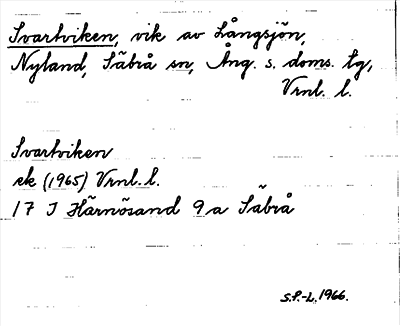 Svartviken, vik av Långsjön,
Nyland, Säbrå sn, Ång. s. doms. tg,
Vrnl. l.
Svartviken
ek (1965) Vrnl. l.
17 J Härnösand 9 a Säbrå
S.P.-L. 1966.